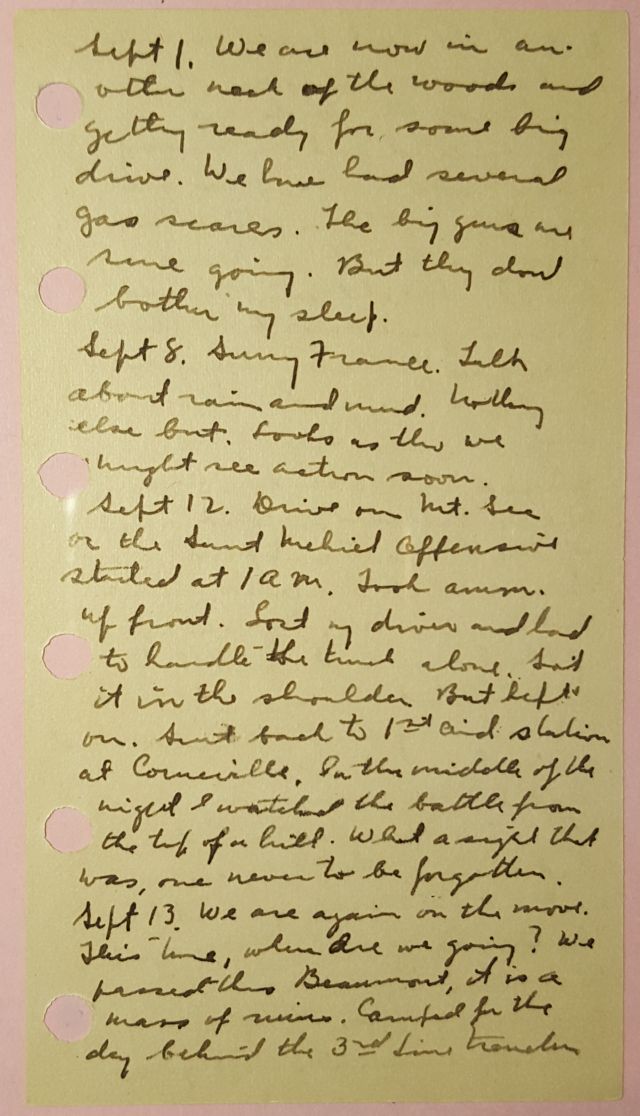 Sept 1. We are now in an-
other neck of the woods and
getting ready for some big
drive. We have had several
gas scares. The big guns are
sure going. But they don't
bother my sleep.
Sept 8. Sunny France. Talk
about rain and mud. Nothing
else but. Looks as tho we
might see action soon.
Sept 12. Drive on Mt. Sec
or the Saint Mehiel Offensive
started at 1 A M. Took amm.
up front. Lost my driver and had
to handle the truck alone. Got
it in the shoulder But kept
on. Sent back to 1st aid station
at Corneiville. In the middle of the
night I watched the battle from
the top of a hill. What a sight that
was, one never to be forgotten.
Sept 13. We are again on the move.
This time, where are we going? We
passed thru Beaumont, it is a
mass of ruins. Camped for the
day behind the 3rd line trenches